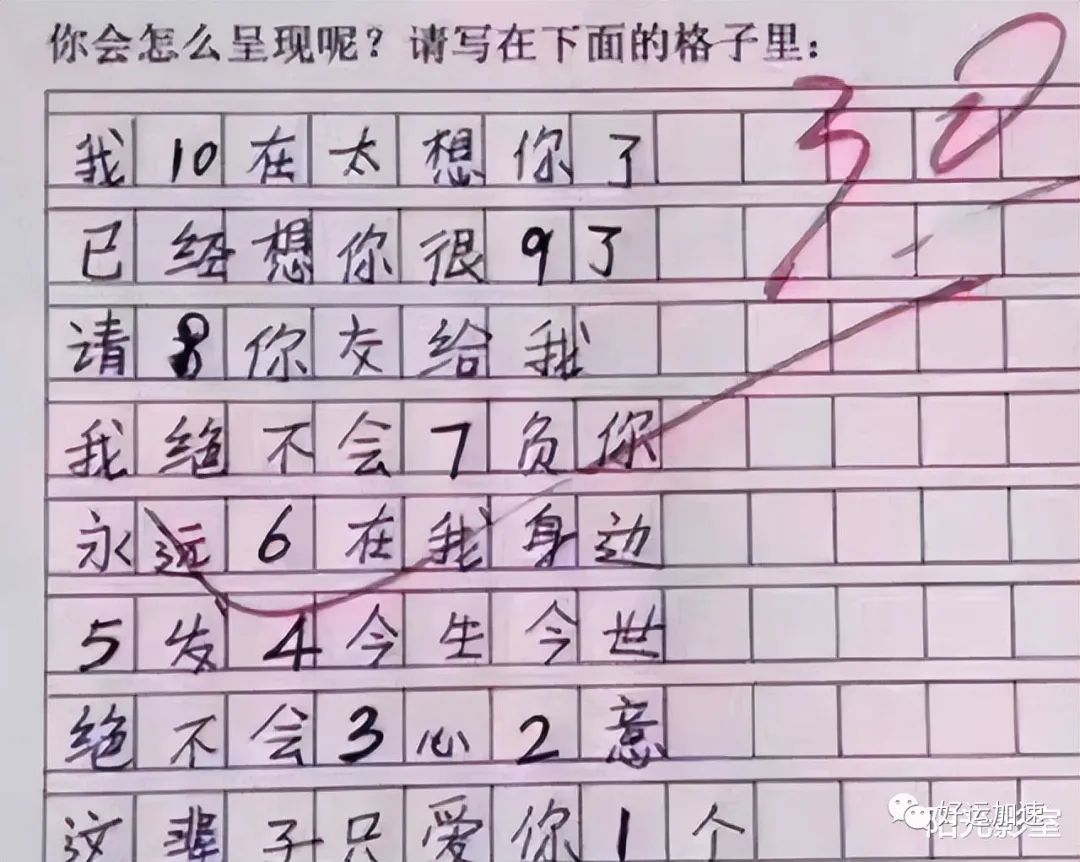 你会怎么呈现呢？请写在下面的格子里：
30
我10在太想你了
已经想你很9了
请8你交给我
我绝不会7负你
永远6在我身边
5发4今生今世
绝不会3心2意
这辈子只爱你1个
好运加速
阳光影室